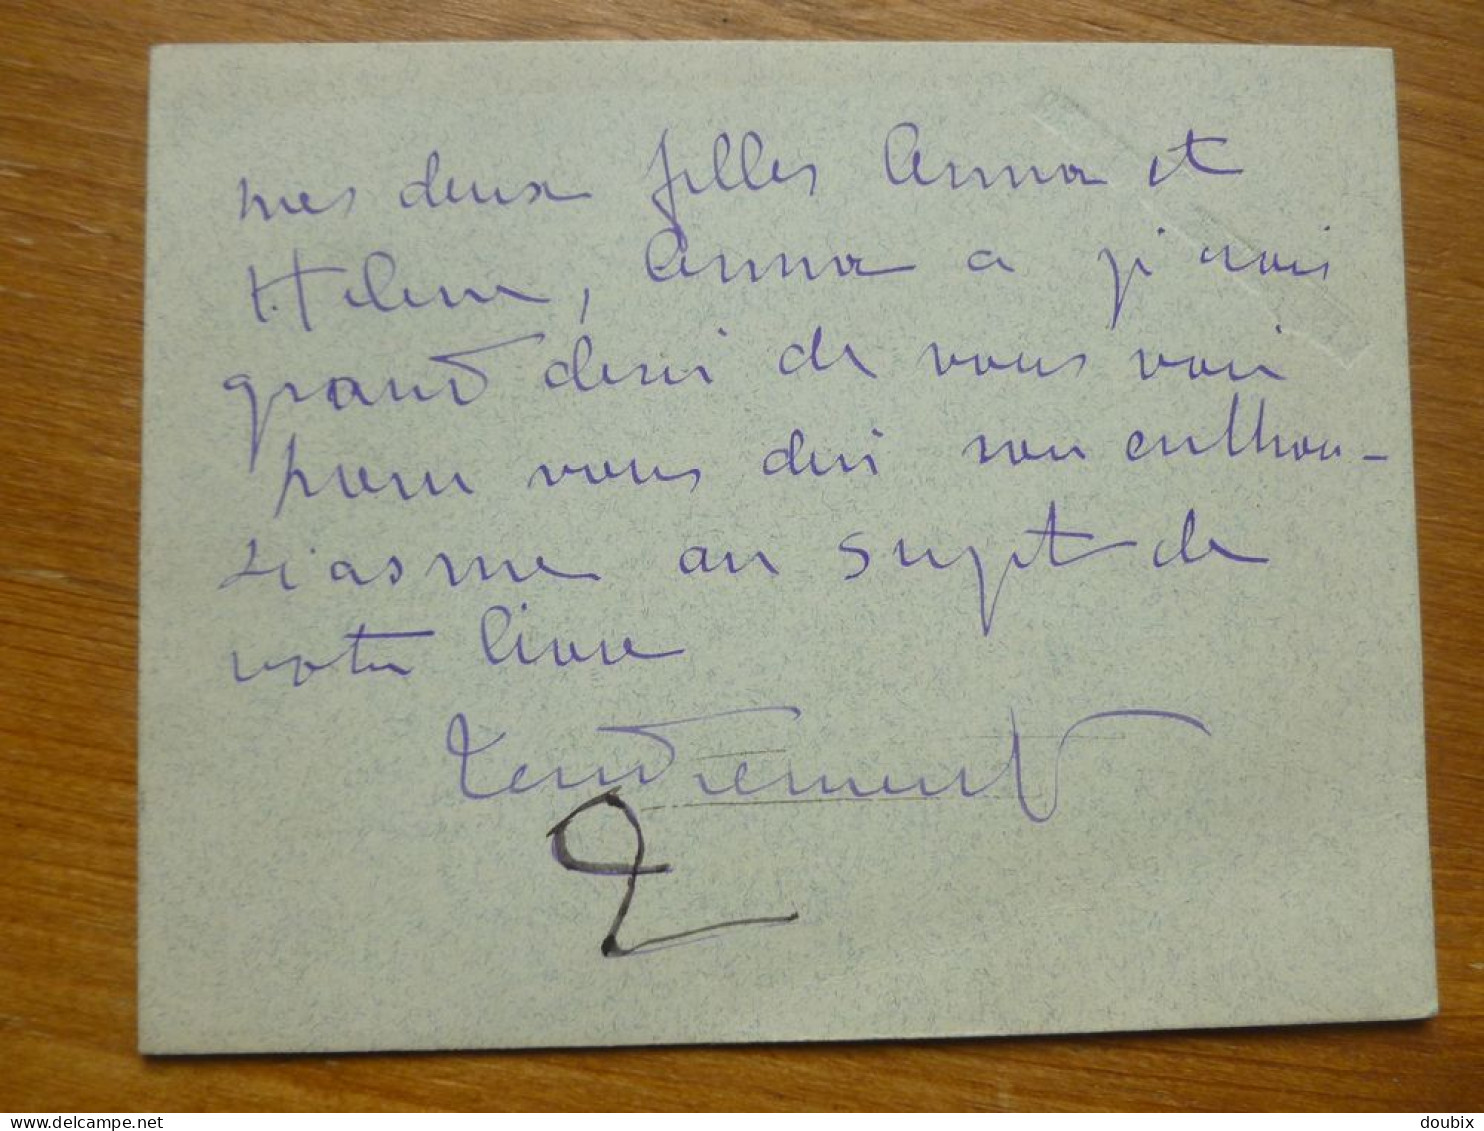 mes deux filles Anna et
Helene, Anna a je crois
grand desir de vous voir
pour vous dire son enthou-
siasme au sujet de
votre livre
tendrement
delcampe.net
doubix